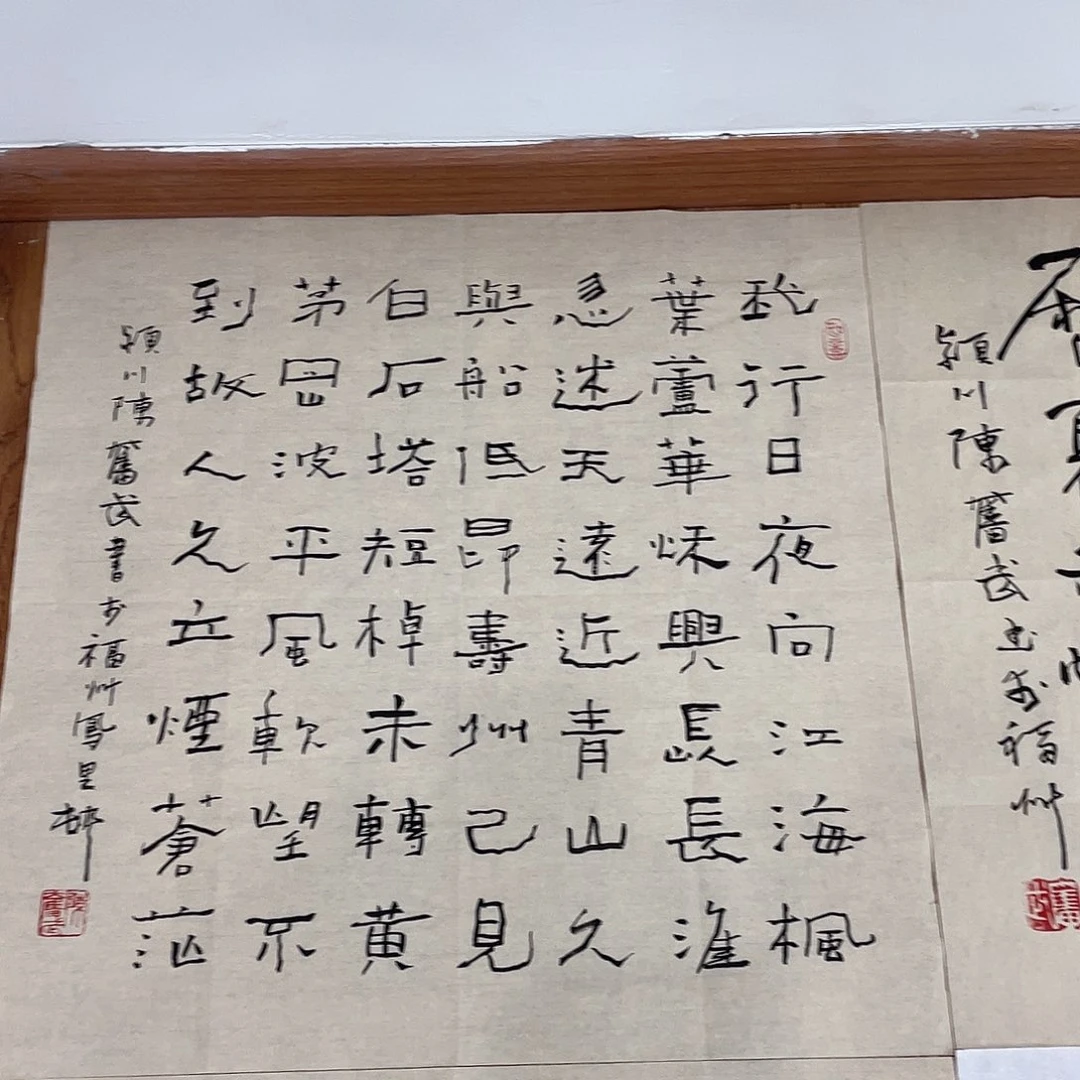 我行日夜向江海楓
葉蘆華秌興長長淮
忽迷天遠近青山久
與船低昂壽州已見
白石塔短棹未轉黃
茅岡波平風軟望不
到故人久立煙蒼茫
穎川陳奮武書於福州鳳里
穎川陳奮武書於福州